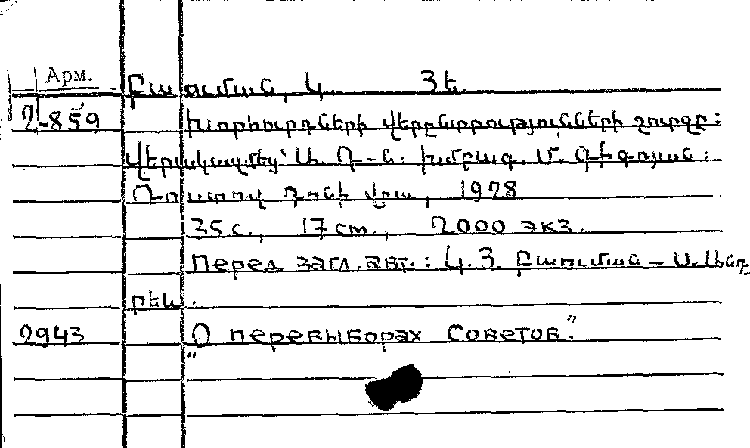 Арм.
Բաուման, Կ. Յե.
2-859 Խորհուրդների վերընտրությունների շուրջը:
Վերակազմեց՝ Ա. Դ-ն: խմբագ. Մ. Գիգոյան:
Ռոստով Դոնի վրա, 1928
35 с., 17 cm., 2000 экз.
Перед загл. авт.: Կ. Յ. Բաուման – Ա. Անդ
րեև.
2943 „О перевыборах Советов."